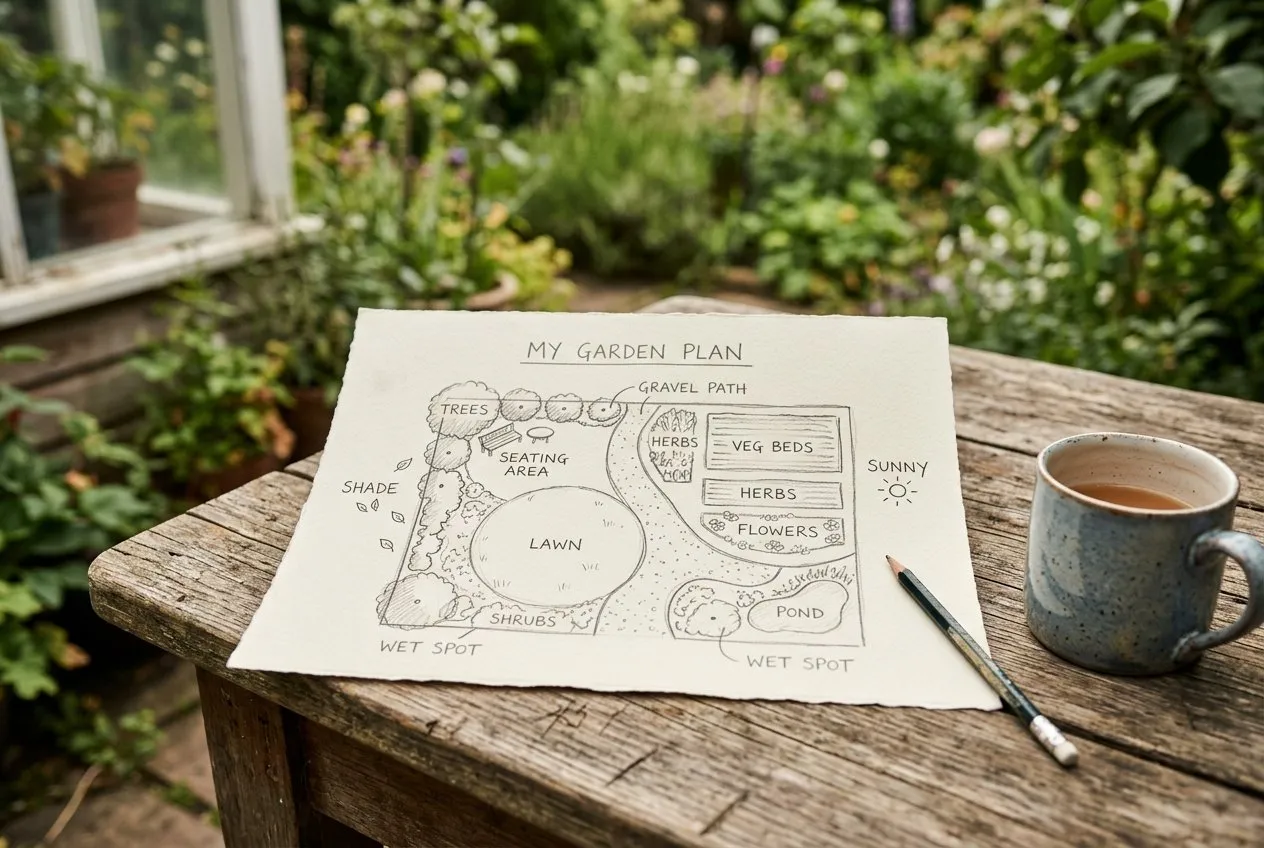 MY GARDEN PLAN
GRAVEL PATH
TREES
HERBS
VEG BEDS
SEATING
AREA
SUNNY
SHADE
HERBS
FLOWERS
LAWN
POND
SHRUBS
WET SPOT
WET SPOT